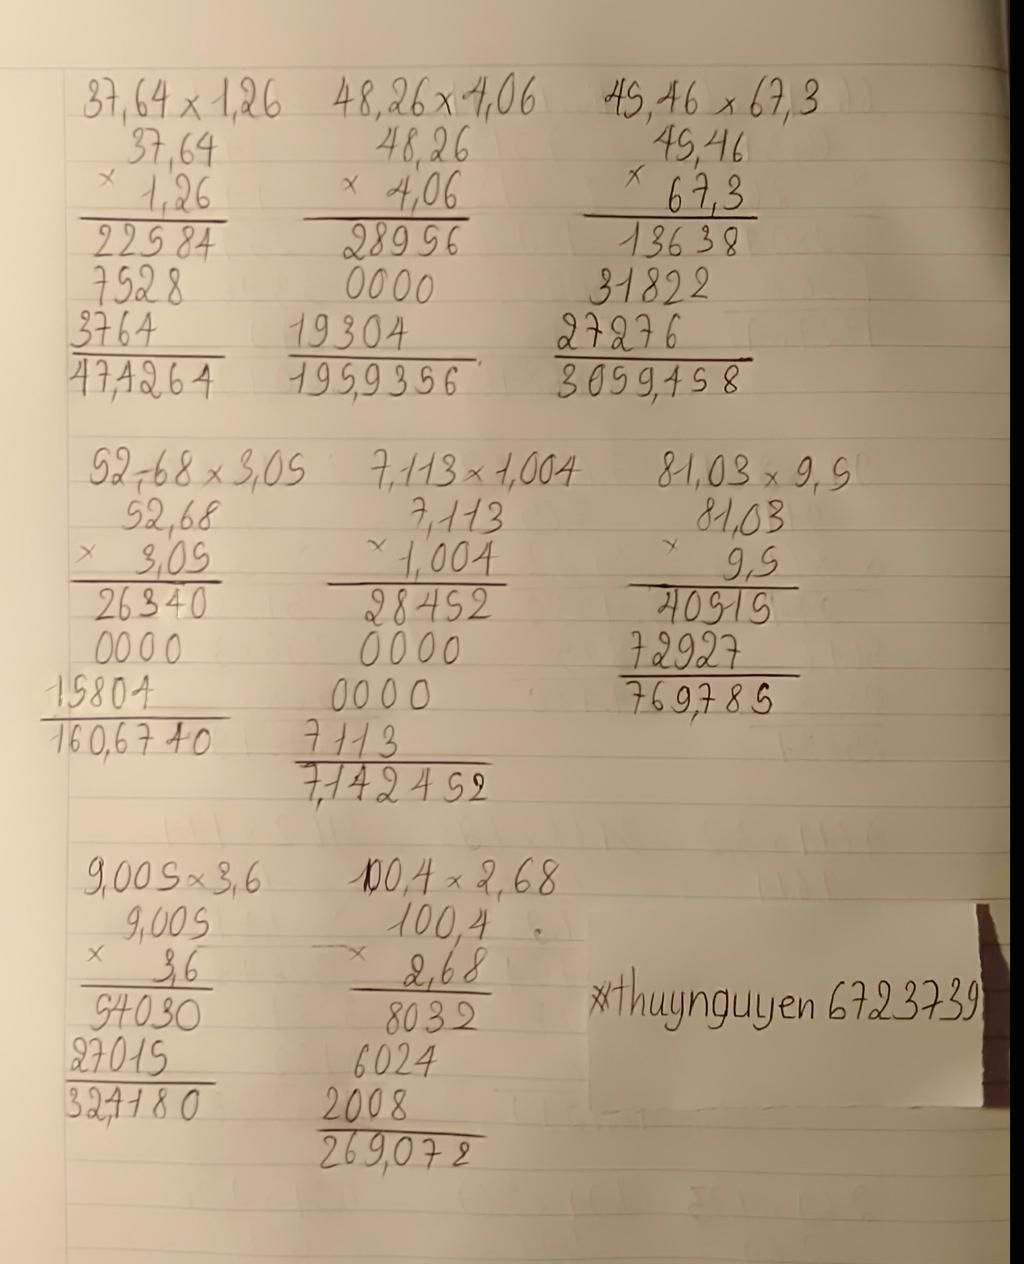 37,64 × 1,26 48,26 × 4,06 45,46 × 67,3
37,64 48,26 45,46
× 1,26 × 4,06 × 67,3
22584 28956 13638
7528 0000 31822
3764 19304 27276
47,4264 195,9356 3059,458
52,68 × 3,05 7,113 × 1,004 81,03 × 9,5
52,68 7,113 81,03
× 3,05 × 1,004 × 9,5
26340 28452 40515
0000 0000 72927
15804 0000 769,785
160,6740 7113
7,142452
9,005 × 3,6 100,4 × 2,68
9,005 100,4
× 3,6 × 2,68
54030 8032
27015 6024
32,4180 2008
269,072
*thuynguyen 6723739